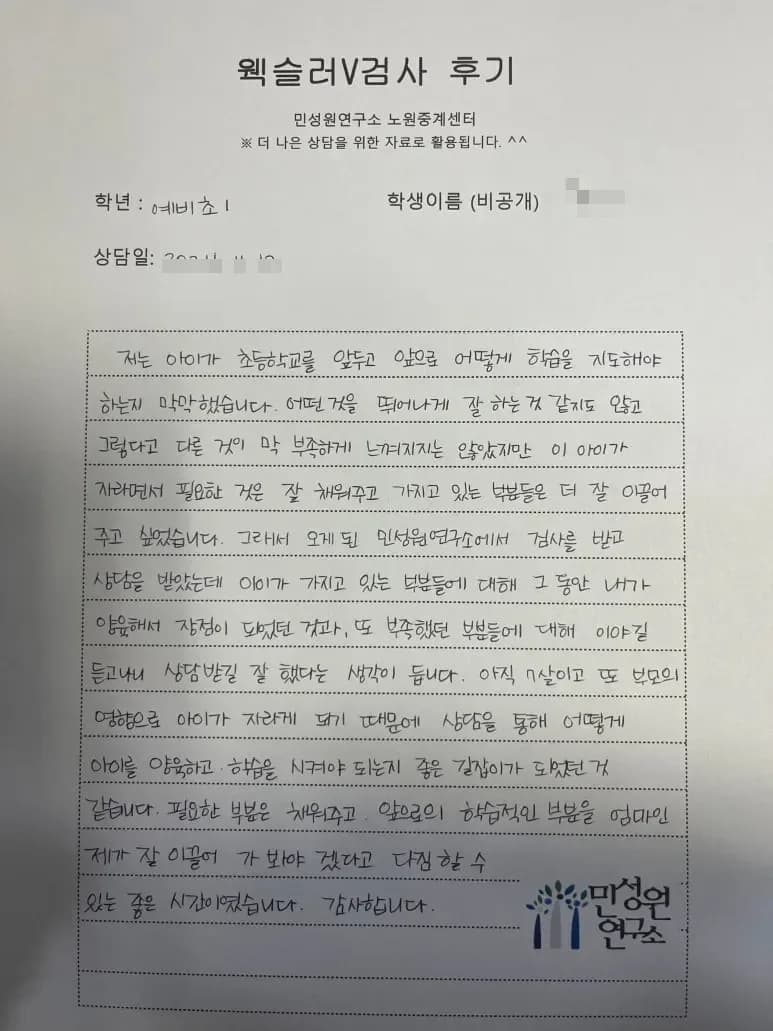 웩슬러V검사 후기
민성원연구소 노원중계센터
※ 더 나은 상담을 위한 자료로 활용됩니다. ^^
학년 : 예비초1
학생이름 (비공개)
상담일:
저는 아이가 초등학교를 앞두고 앞으로 어떻게 학습을 지도해야
하는지 막막했습니다. 어떤 것을 뛰어나게 잘 하는 것 같지도 않고
그렇다고 다른 것이 막 부족하게 느껴지지는 않았지만 이 아이가
자라면서 필요한 것은 잘 채워주고 가지고 있는 부분들은 더 잘 이끌어
주고 싶었습니다. 그래서 오게 된 민성원연구소에서 검사를 받고
상담을 받았는데 아이가 가지고 있는 부분들에 대해 그 동안 내가
양육해서 장점이 되었던 것과, 또 부족했던 부분들에 대해 이야길
듣고나니 상담받길 잘 했다는 생각이 듭니다. 아직 7살이고 또 부모의
영향으로 아이가 자라게 되기 때문에 상담을 통해 어떻게
아이를 양육하고 학습을 시켜야 되는지 좋은 길잡이가 되었던 것
같습니다. 필요한 부분은 채워주고 앞으로의 학습적인 부분을 엄마인
제가 잘 이끌어 가 봐야 겠다고 다짐 할 수
있는 좋은 시간이였습니다. 감사합니다.
민성원
연구소